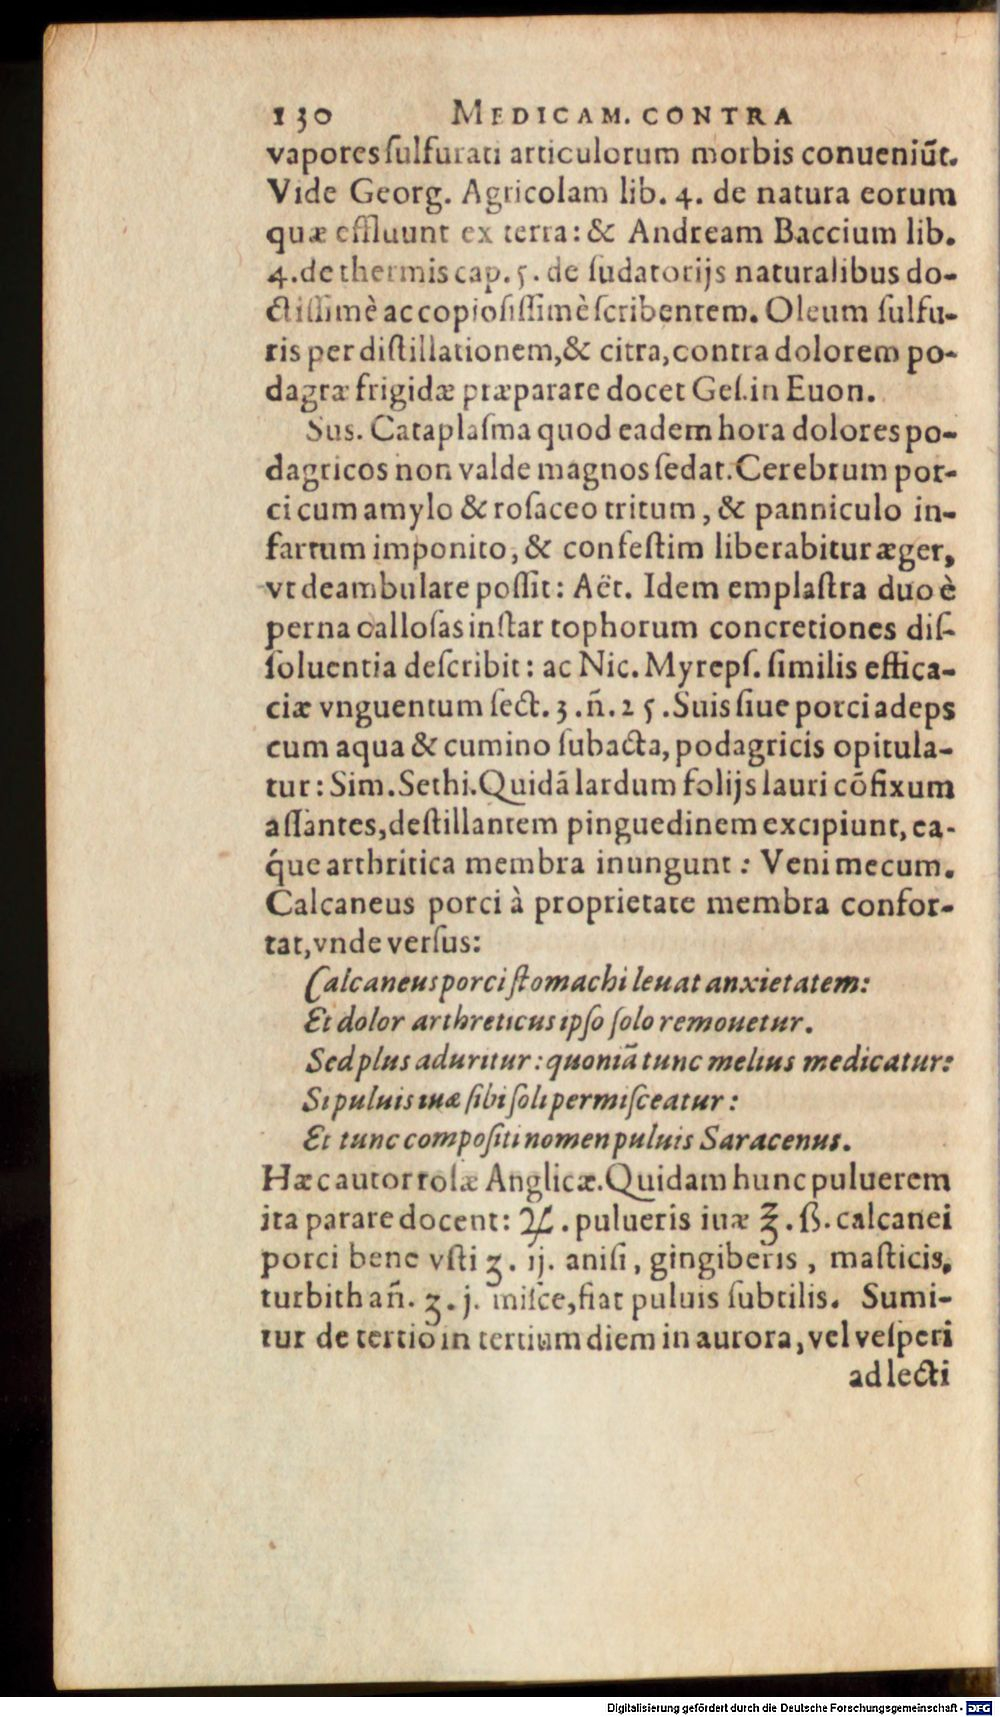 130 MEDICAM. CONTRA
vapores ſulfurati articulorum morbis conueniūt.
Vide Georg. Agricolam lib. 4. de natura eorum
quæ effluunt ex terra: & Andream Baccium lib.
4. de thermis cap. 5. de ſudatorijs naturalibus do-
ctiſſimè ac copioſiſſimè ſcribentem. Oleum ſulfu-
ris per diſtillationem, & citra, contra dolorem po-
dagræ frigidæ præparare docet Geſ. in Euon.
Sus. Cataplaſma quod eadem hora dolores po-
dagricos non valde magnos ſedat. Cerebrum por-
ci cum amylo & roſaceo tritum, & panniculo in-
fartum imponito, & confeſtim liberabitur æger,
vt deambulare poſſit: Aët. Idem emplaſtra duo è
perna calloſas inſtar tophorum concretiones diſ-
ſoluentia deſcribit: ac Nic. Myrepſ. ſimilis effica-
ciæ vnguentum ſect. 3. ñ. 25. Suis ſiue porci adeps
cum aqua & cumino ſubacta, podagricis opitula-
tur: Sim. Sethi. Quidā lardum folijs lauri cōfixum
aſſantes, deſtillantem pinguedinem excipiunt, ea-
q́ue arthritica membra inungunt: Veni mecum.
Calcaneus porci à proprietate membra confor-
tat, vnde verſus:
Calcaneus porci ſtomachi leuat anxietatem:
Et dolor arthreticus ipſo ſolo remouetur.
Sed plus aduritur: quoniā tunc melius medicatur:
Si puluis iuæ ſibi ſoli permiſceatur:
Et tunc compoſiti nomen puluis Saracenus.
Hæc autor roſæ Anglicæ. Quidam hunc puluerem
ita parare docent: ♃. pulueris iuæ ℥. ß. calcanei
porci bene vſti ʒ. ij. aniſi, gingiberis, maſticis,
turbith añ. ʒ. j. miſce, fiat puluis ſubtilis. Sumi-
tur de tertio in tertium diem in aurora, vel veſperi
ad lecti
Digitalisierung gefördert durch die Deutsche Forschungsgemeinschaft - DFG